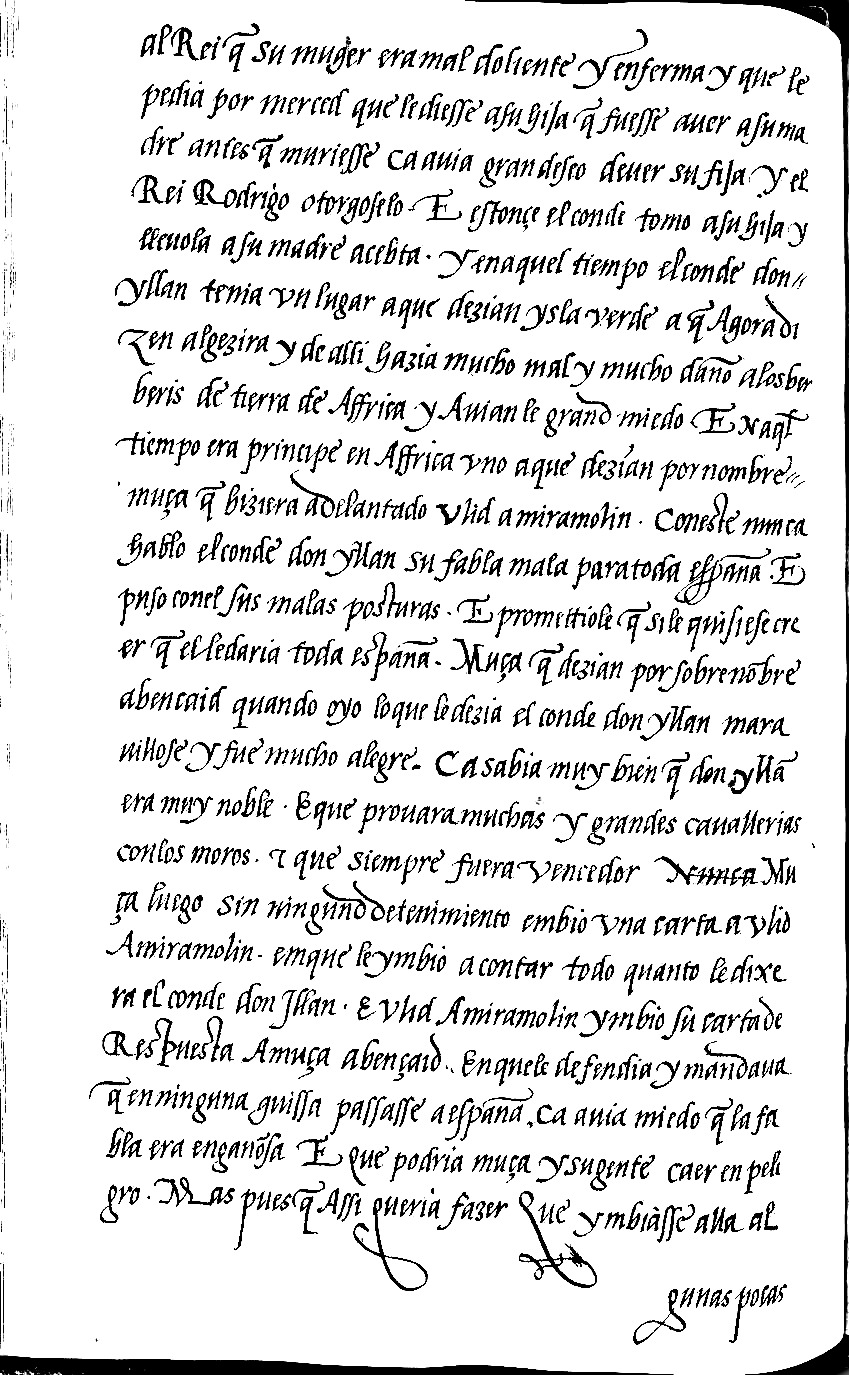 al Rei q̃ su muger era mal doliente y enferma y que le
pedia por merced que le diesse a su hija q̃ fuesse a uer a su ma
dre antes q̃ muriesse Ca auia gran deseo de uer su fija y el
Rei Rodrigo otorgoselo. E estonçe el conde tomo a su hija y
lleuola a su madre a cebta. y en aquel tiempo el conde don
yllan tenia vn lugar a que dezian ysla verde a q̃ Agora di
zen algezira y de alli hazia mucho mal y mucho daño a los ber
beris de tierra de Affrica y Auian le grand miedo E N aql̃
tiempo era principe en Affrica vno a que dezian por nombre
muça q̃ hiziera adelantado vlid amiramolin. Con este munca
hablo el conde don yllan su fabla mala para toda españa. E
puso con el sus malas posturas. E promettiole q̃ si le quisiese cre
er q̃ el le daria toda españa. Muça q̃ dezian por sobre nõbre
abencaid quando oyo lo que le dezia el conde don yllan mara
uillose y fue mucho alegre. Ca sabia muy bien q̃ don yllã
era muy noble. E que prouara muchas y grandes cauallerias
con los moros. τ que siempre fuera vencedor Nunca Mu
ça luego sin ningund detenimiento embio vna carta a vlid
Amiramolin. em que le ymbio a contar todo quanto le dixe
ra el conde don Jllan. E vlid Amiramolin ymbio su carta de
Respuesta A muça abençaid. En que le defendia y mandaua
q̃ en ninguna guissa passasse a españa, ca auia miedo q̃ la fa
bla era engañosa E que podria muça y su gente caer en peli
gro. Mas pues q̃ Assi queria fazer Que ymbiasse alla al
gunas pocas